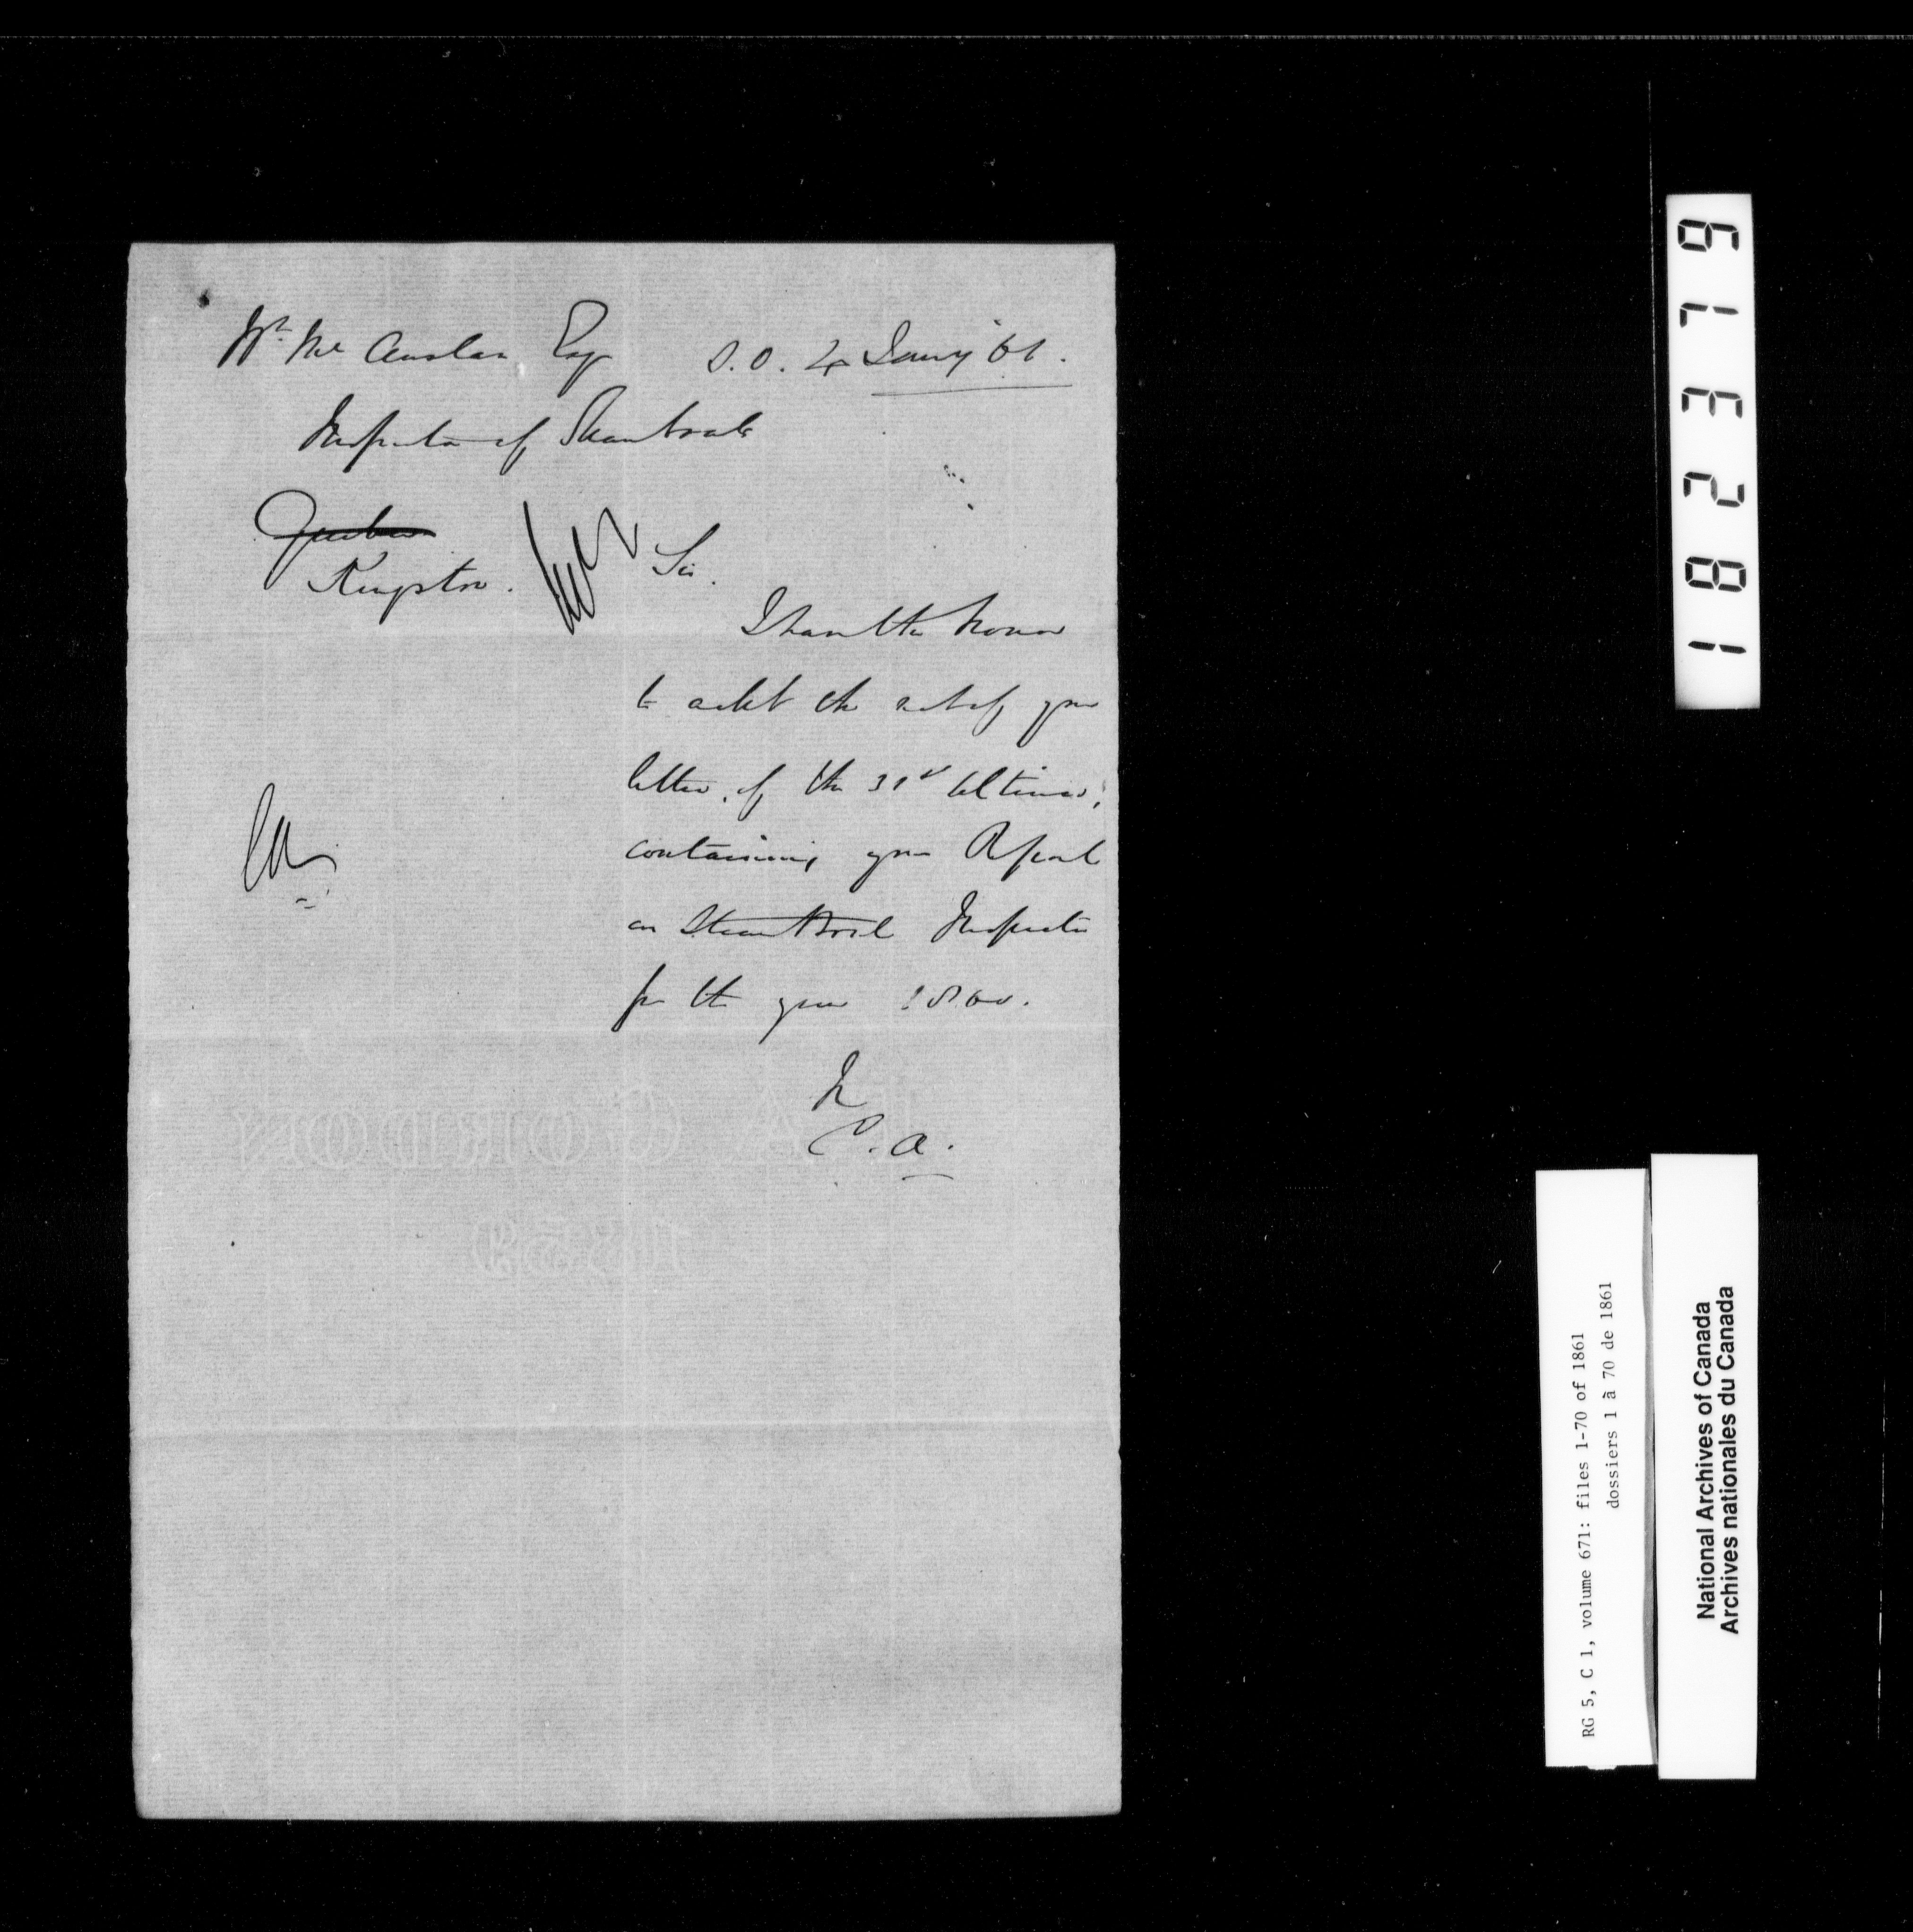 Wm. McAuslan Esq
S.O. 4 Jany '61.
Inspector of Steamboats
Quebec
Kingston.
Sir.
I have the honor
to ackt the rect of your
letter, of the 31st Ultimo,
containing your Report
on Steam Boat Inspection
for the year 1860.
I
P. A.
182379
RG 5, C 1, volume 671: files 1-70 of 1861
dossiers 1 à 70 de 1861
National Archives of Canada
Archives nationales du Canada